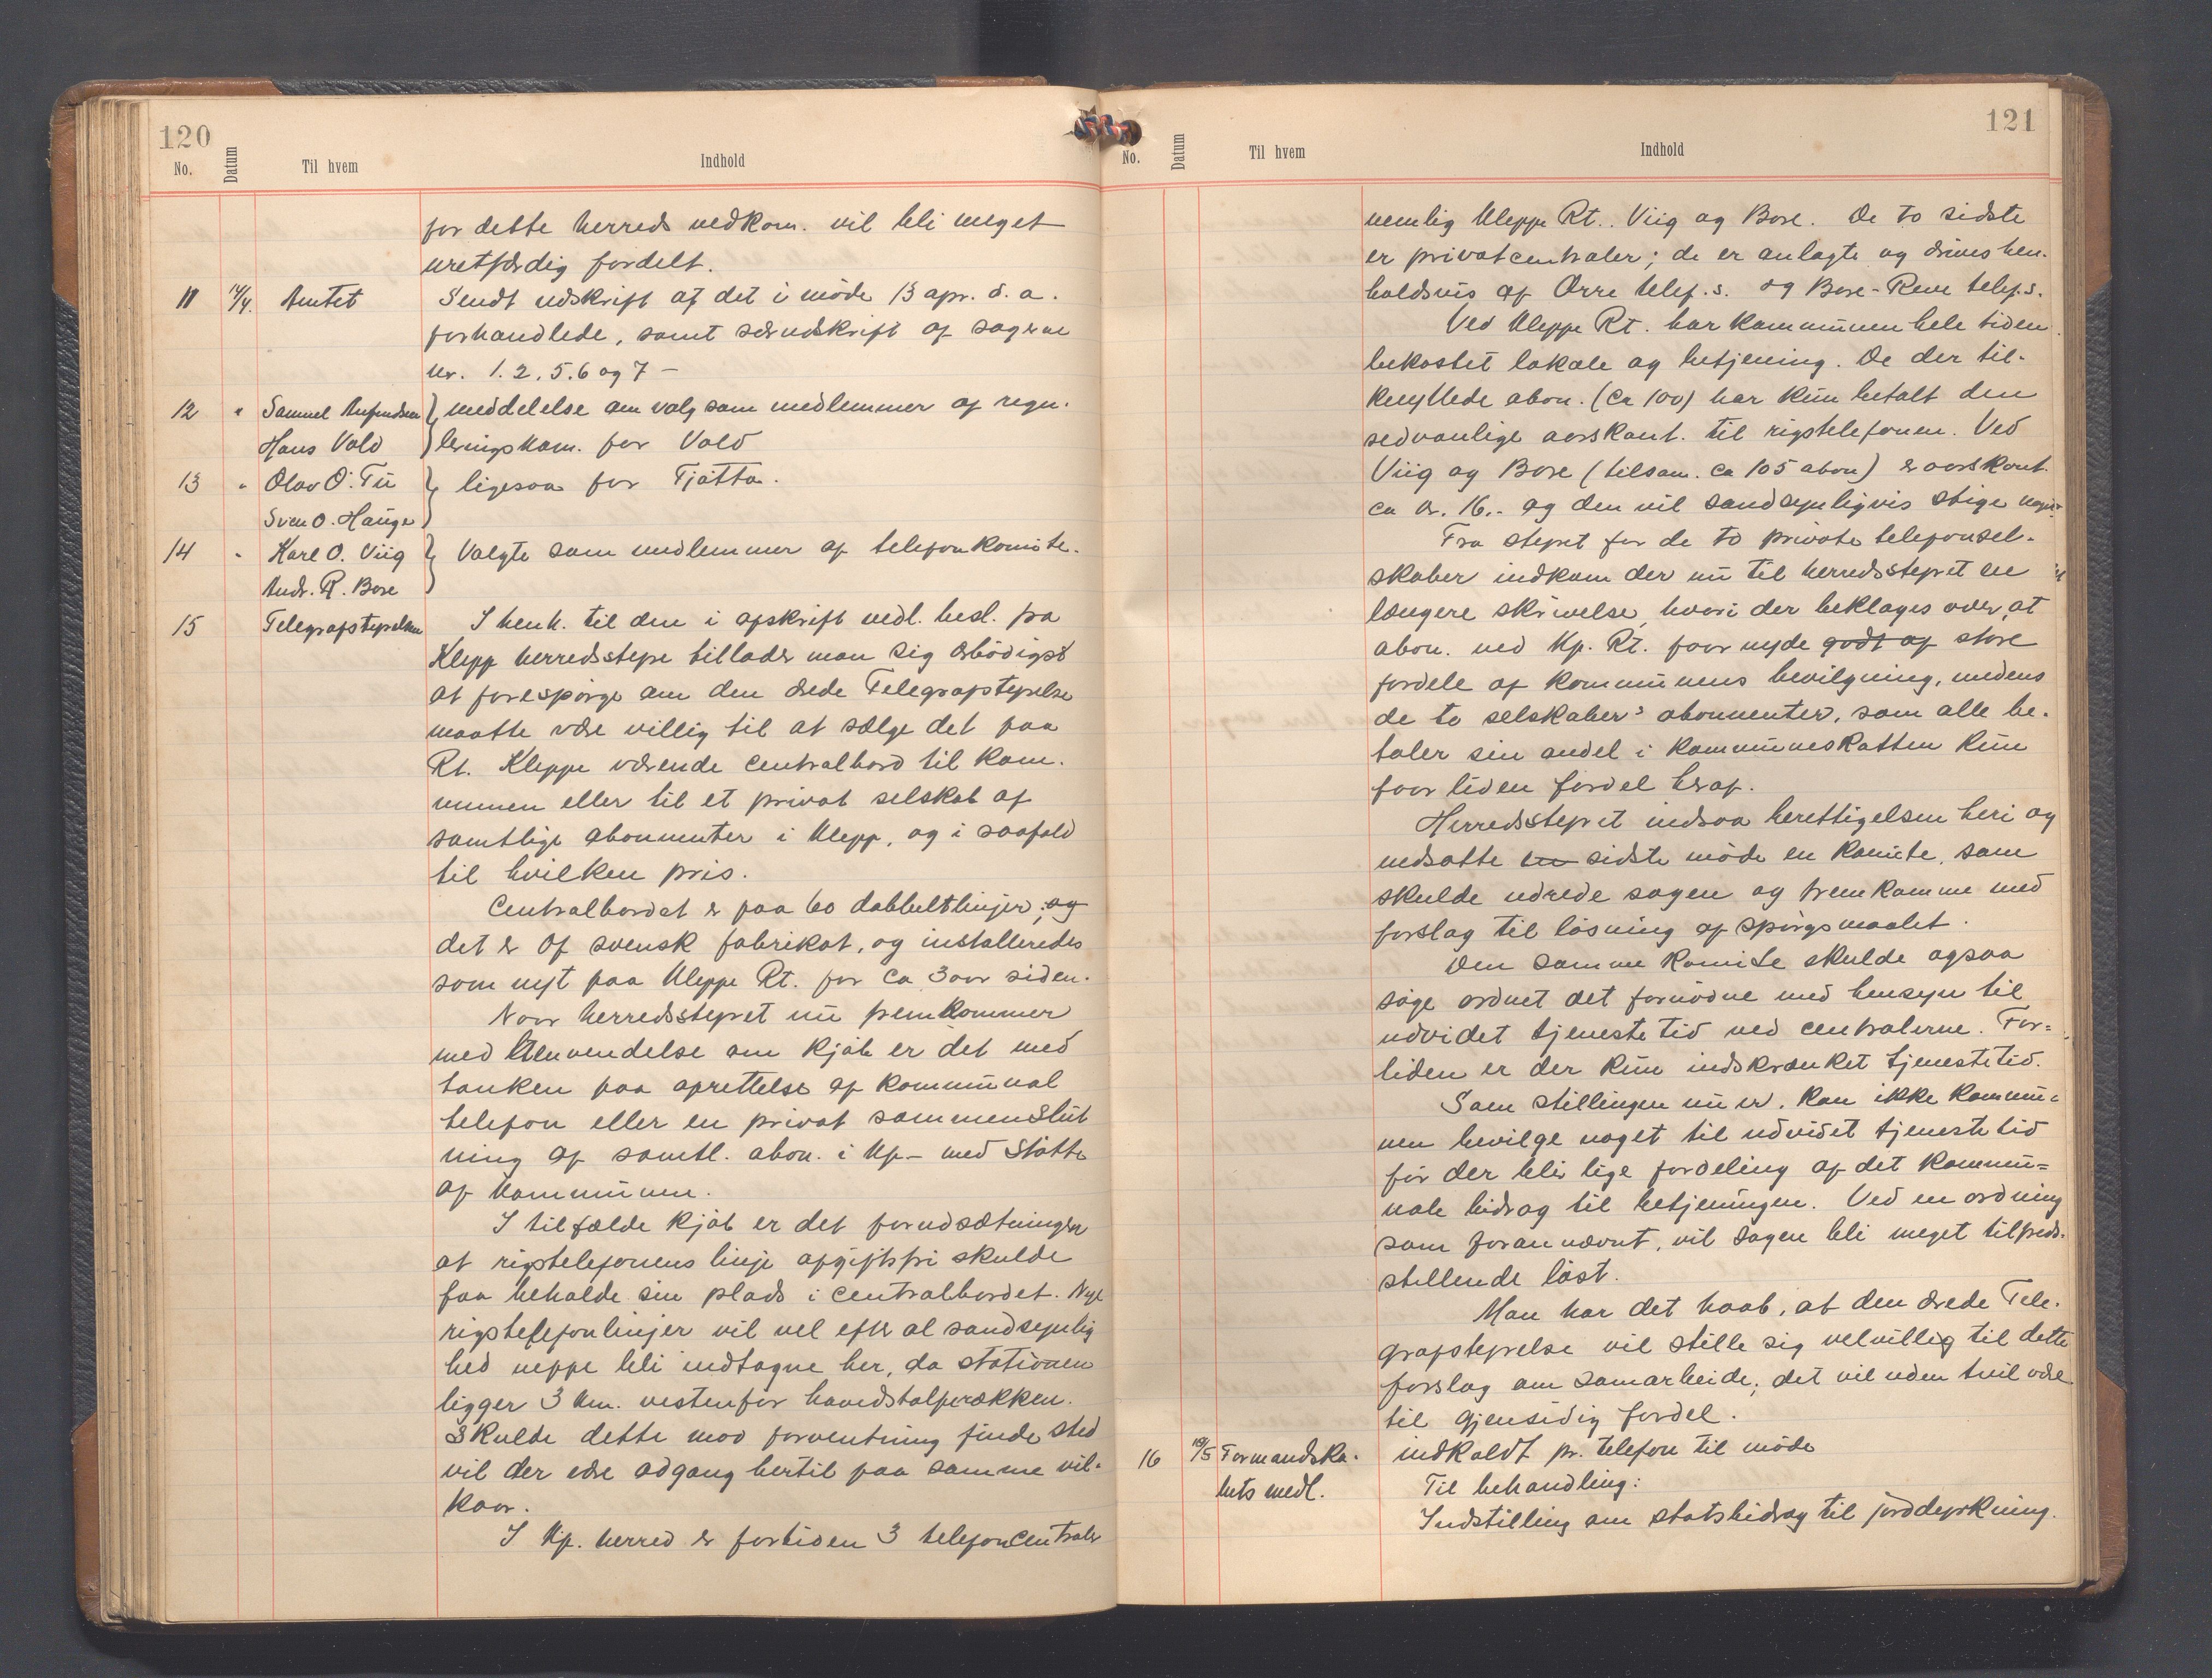 120
No. Datum Til hvem Indhold
for dette herreds vedkom. vil bli meget
uretfærdig fordelt.
11 14/4. Amtet Sendt udskrift af det i møde 13 apr. d. a.
forhandlede, samt særudskrift af sagerne
nr. 1. 2. 5. 6 og 7 –
12 " Samuel } meddelelse om valg som medlemmer af regu-
Hans Vold } leringskom. for Vold
13 " Olav O. Tu } ligesaa for Tjøtta.
Sven O. Hauge }
14 " Karl O. Viig } Valgte som medlemmer af telefonkomite.
Andr. R. Bore }
15 Telegrafstyrelsen I henh. til den i afskrift vedl. besl. fra
Klepp herredsstyre tillader man sig ærbødigst
at forespørge om den ærede Telegrafstyrelse
maatte være villig til at sælge det paa
Rt. Kleppe værende centralbord til kom-
munen eller til et privat selskab af
samtlige abonnenter i Klepp, og i saafald
til hvilken pris.
Centralbordet er paa 60 dobbeltlinjer; og
det er af svensk fabrikat, og installeredes
som nyt paa Kleppe Rt. for ca 3 aar siden.
Naar herredsstyret nu fremkommer
med henvendelse om kjøb er det med
tanken paa oprettelse af kommunal
telefon eller en privat sammenslut
ning af samtl. abon. i Kp – med støtte
af kommunen.
I tilfælde kjøb er det forudsætningen
at rigstelefonens linje afgiftsfri skulde
faa beholde sin plads i centralbordet. Nye
rigstelefonlinjer vil vel efter al sandsynlig
hed neppe bli indtagne her, da stationen
ligger 3 km. vestenfor hovedstolperækken.
Skulde dette mod forventning finde sted
vil der være adgang hertil paa samme vil-
kaar.
I Kp. herred er fortiden 3 telefoncentraler
121
No. Datum Til hvem Indhold
nemlig Kleppe Rt., Viig og Bore. De to sidste
er privatcentraler; de er anlagte og drives hen-
holdsvis af Orre telef.s. og Bore-Reve telef.s.
Ved Kleppe Rt. har kommunen hele tiden
bekostet lokale og betjening. De der til-
knyttede abon. (ca 100) har kun betalt den
sedvanlige aarskont. til rigstelefonen. Ved
Viig og Bore (tilsam. ca 105 abon) er aarskont.
ca kr. 16.- og den vil sandsynligvis stige noget.
Fra styret for de to private telefonsel-
skaber indkom der nu til herredsstyret en
længere skrivelse, hvori der beklages over, at
abon. ved Kp. Rt. faar nyde godt af store
fordele af kommunens bevilgning, medens
de to selskaber's abonnenter, som alle be-
taler sin andel i kommuneskatten kun
faar liden fordel heraf.
Herredsstyret indsaa berettigelsen heri og
nedsatte en sidste møde en komite, som
skulde udrede sagen og fremkomme med
forslag til løsning af spørgsmaalet.
Den samme komite skulde ogsaa
søge ordnet det fornødne med hensyn til
udvidet tjenestetid ved centralerne. For-
tiden er der kun indskrænket tjenestetid.
Som stillingen nu er, kan ikke kommu-
nen bevilge noget til udvidet tjenestetid
før der blir lige fordeling af det kommu-
nale bidrag til betjeningen. Ved en ordning
som forannævnt, vil sagen bli meget tilfreds-
stillende løst.
Man har det haab, at den ærede Tele-
grafstyrelse vil stille sig velvillig til dette
forslag om samarbeide; det vil uden tvil være
til gjensidig fordel.
16 19/5 Formandska- indkaldt pr. telefon til møde
bets medl. Til behandling:
Indstilling om statsbidrag til jorddyrkning.